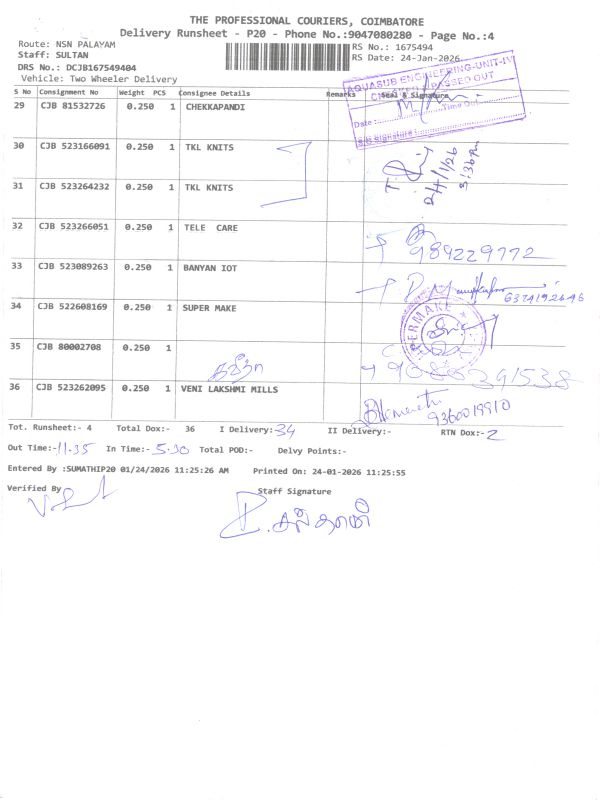 THE PROFESSIONAL COURIERS, COIMBATORE
Delivery Runsheet - P20 - Phone No.:9047080280 - Page No.:4
Route: NSN PALAYAM
RS No.: 1675494
Staff: SULTAN
RS Date: 24-Jan-2026
DRS No.: DCJB167549404
Vehicle: Two Wheeler Delivery
S No Consignment No Weight PCS Consignee Details Remarks Seal & Signature
AQUASUB ENGINEERING-UNIT-IV
29 CJB 81532726 0.250 1 CHEKKAPANDI
Date : Time Out
S/G Signature :
30 CJB 523166091 0.250 1 TKL KNITS
24/1/26
3:36 pm
31 CJB 523264232 0.250 1 TKL KNITS
32 CJB 523266051 0.250 1 TELE CARE
989229772
33 CJB 523089263 0.250 1 BANYAN IOT
6374192646
34 CJB 522608169 0.250 1 SUPER MAKE
35 CJB 80002708 0.250 1
9088391538
36 CJB 523262095 0.250 1 VENI LAKSHMI MILLS
9360019910
Tot. Runsheet:- 4 Total Dox:- 36 I Delivery:- 34 II Delivery:- RTN Dox:- 2
Out Time:- 11.35 In Time:- 5.30 Total POD:- Delvy Points:-
Entered By :SUMATHIP20 01/24/2026 11:25:26 AM Printed On: 24-01-2026 11:25:55
Verified By
Staff Signature